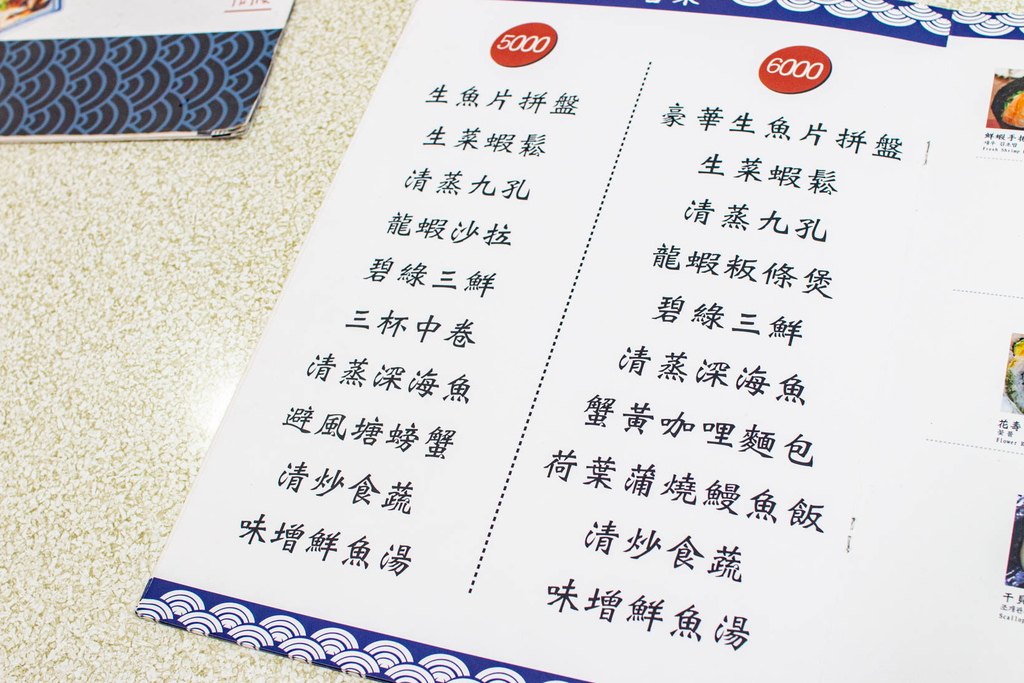 5000
生魚片拼盤
生菜蝦鬆
清蒸九孔
龍蝦沙拉
碧綠三鮮
三杯中卷
清蒸深海魚
避風塘螃蟹
清炒食蔬
味增鮮魚湯
6000
豪華生魚片拼盤
生菜蝦鬆
清蒸九孔
龍蝦粄條煲
碧綠三鮮
清蒸深海魚
蟹黃咖哩麵包
荷葉蒲燒鰻魚飯
清炒食蔬
味增鮮魚湯
鮮蝦手
Fresh Shrimp
花壽
Flower
干貝
Scallop